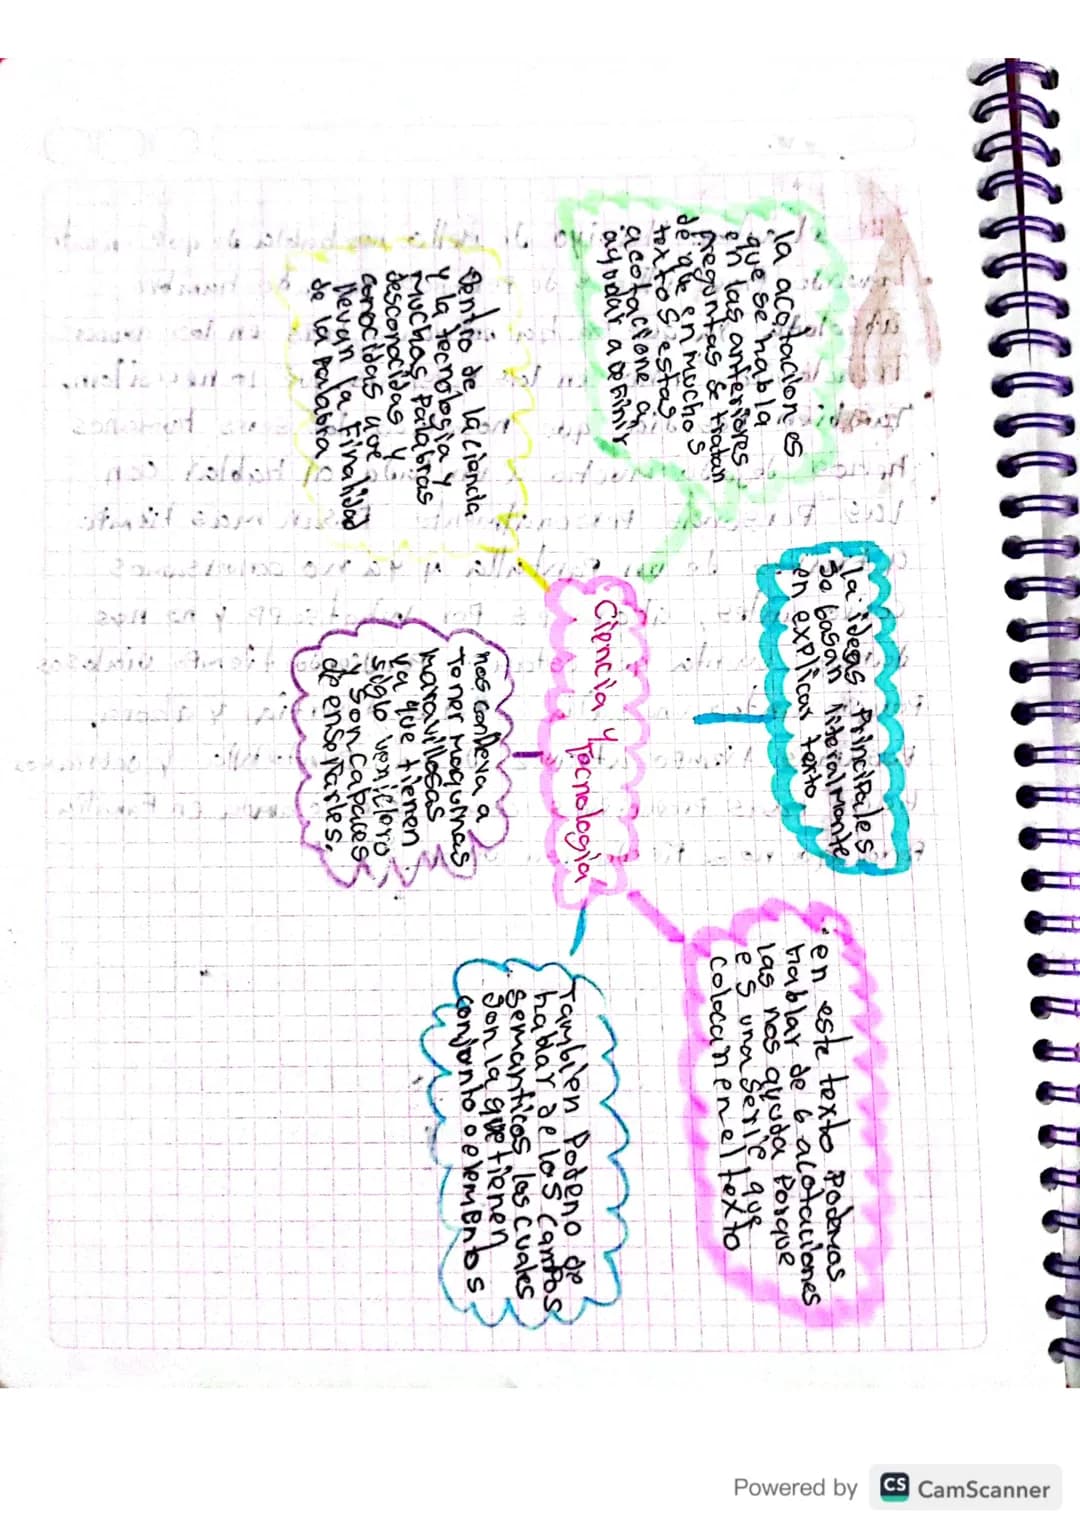 la acotacion es
que se habla
en las anteriores
preguntas se tratan
de que en muchos
textos estas
acotacione an
ayudar a definir
la ideas Principales
se basan literalmente
en explicar texto
en este texto podemos
hablar de 6 acotaciones
las nos ayuda porque
es una serie que
colocan en el texto
Ciencia y Tecnologia
Dentro de la ciencia
y la tecnologia y
muchas palabras
desconocidas y
conocidas que
llevan la finalidad
de la palabra
nos conlleva a
tener maquinas
maravillosas
ya que tienen
siglo
y son capaces
de enseñarles.
Tambien Podeno de
hablar de los campos
semanticos los cuales
son la que tienen
conjunto o elementos
Powered by CS CamScanner